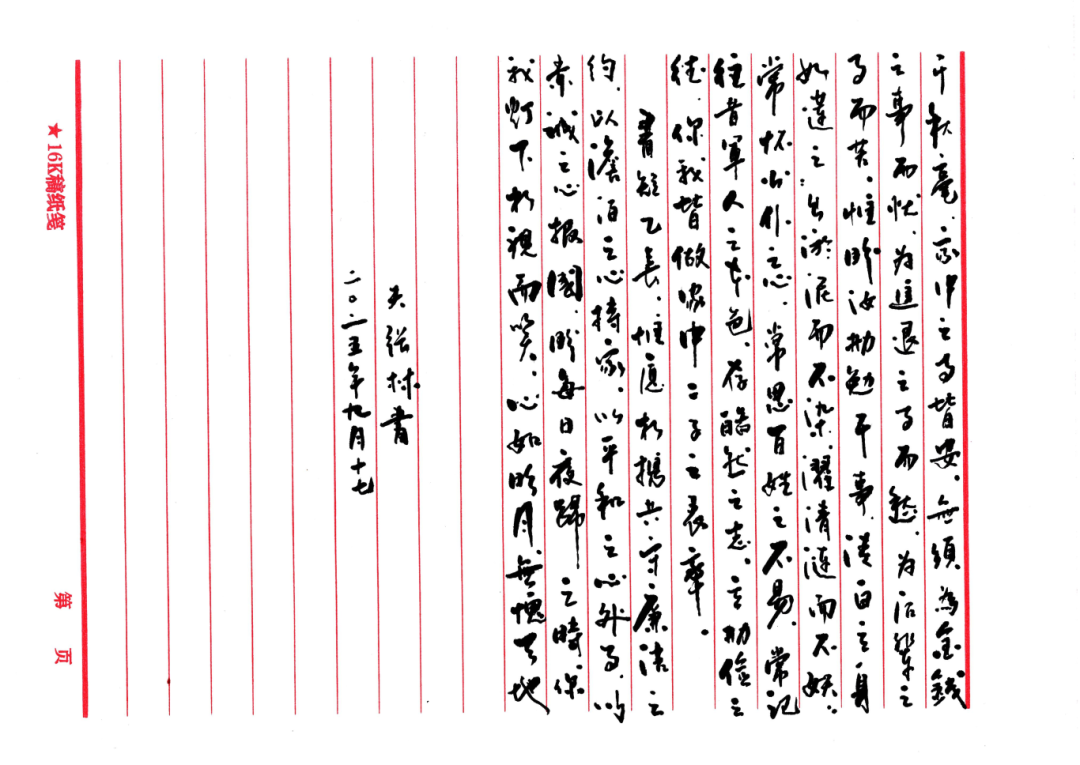 于秋毫、家中之事皆安、無須為金錢
之事而忧、为進退之事而愁、为沾染之
事而苦。惟盼汝勤勉干事、清白立身
如蓮之：出淤泥而不染、濯清漣而不妖。
常怀公仆之心、常思百姓之不易、常记
往昔军人之本色、存酷然之志、立勤俭之
德、你我皆做家中二子之表率。
書短情長、惟愿相携共守廉洁之
约、以澹泊之心持家、以平和之心外事、以
赤诚之心报國、盼每日夜歸之時、你
我灯下相视而笑、心如明月、無愧天地
夫張林書
二〇二五年九月十七
★16K稿纸笺
第 页